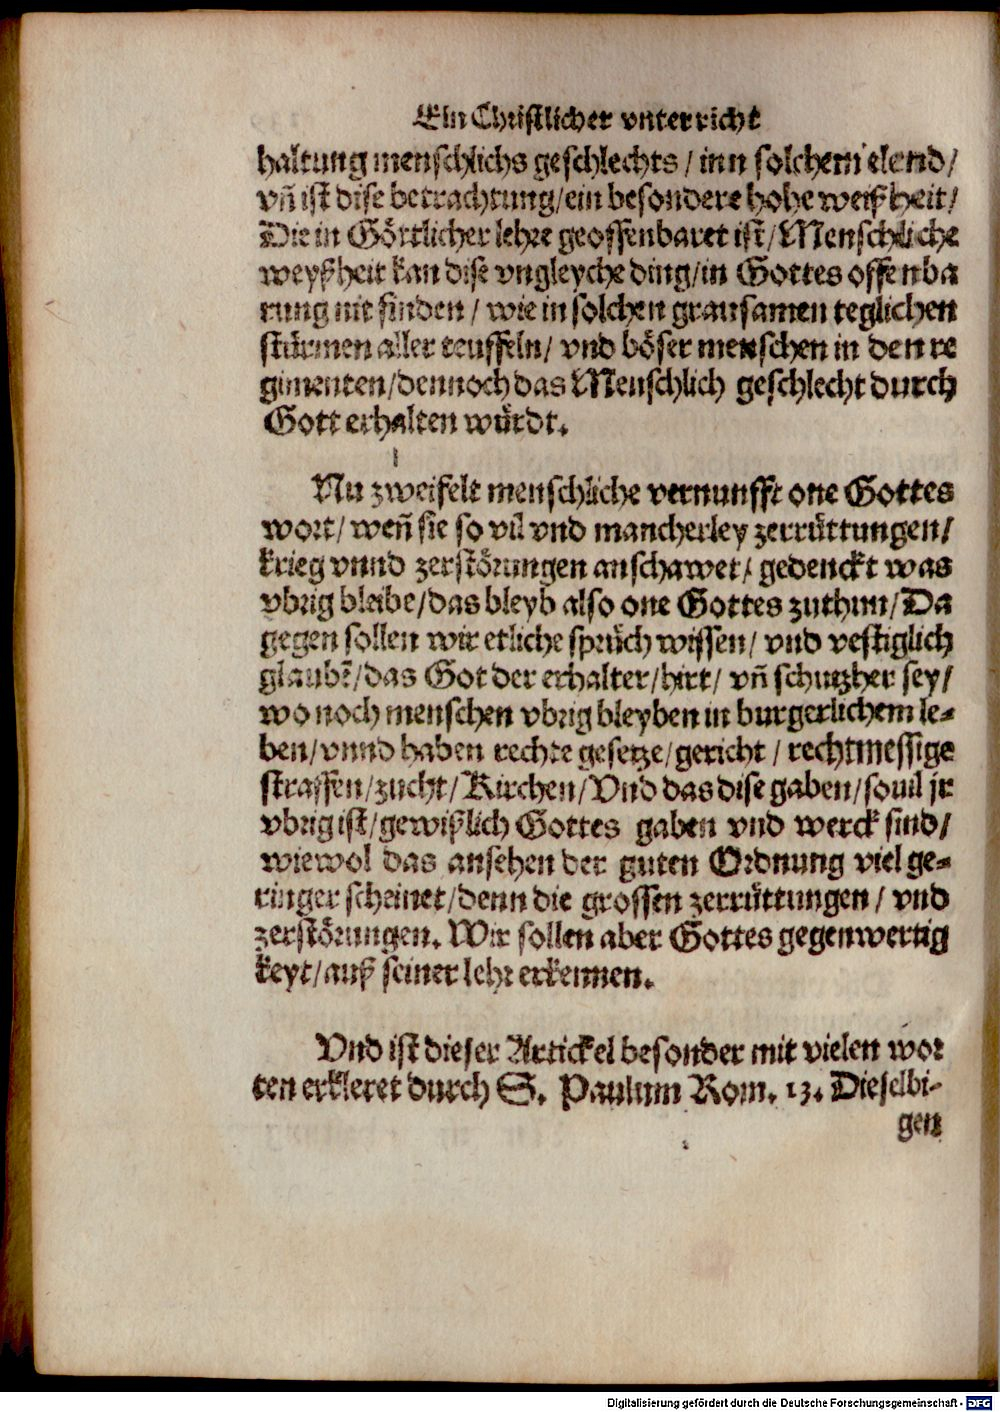 Ein Christlicher vnterricht
haltung menschlichs geschlechts / inn solchem elend /
vñ ist dise betrachtung / ein besondere hohe weißheit /
Die in Göttlicher lehre geoffenbaret ist / Menschliche
weyßheit kan dise vngleyche ding / in Gottes offenba
rung nit finden / wie in solchen grausamen teglichen
stürmen aller teuffeln / vnd böser menschen in den re
gimenten / dennoch das Menschlich geschlecht durch
Gott erhalten würdt.
Nu zweifelt menschliche vernunfft one Gottes
wort / weñ sie so vil vnd mancherley zerrüttungen /
krieg vnnd zerstörungen anschawet / gedenckt was
vbrig bleibe / das bleyb also one Gottes zuthun / Da
gegen sollen wir etliche sprüch wissen / vnd vestiglich
glaubẽ / das Got der erhalter / hirt / vñ schutzher sey /
wo noch menschen vbrig bleyben in burgerlichem le-
ben / vnnd haben rechte gesetze / gericht / rechtmessige
straffen / zucht / Kirchen / Vnd das dise gaben / souil jr
vbrig ist / gewißlich Gottes gaben vnd werck sind /
wiewol das ansehen der guten Ordnung viel ge-
ringer scheinet / denn die grossen zerrüttungen / vnd
zerstörungen. Wir sollen aber Gottes gegenwertig
keyt / auß seiner lehr erkennen.
Vnd ist dieser Artickel besonder mit vielen wor
ten erkleret durch S. Paulum Rom. 13. Dieselbi-
gen
Digitalisierung gefördert durch die Deutsche Forschungsgemeinschaft - DFG